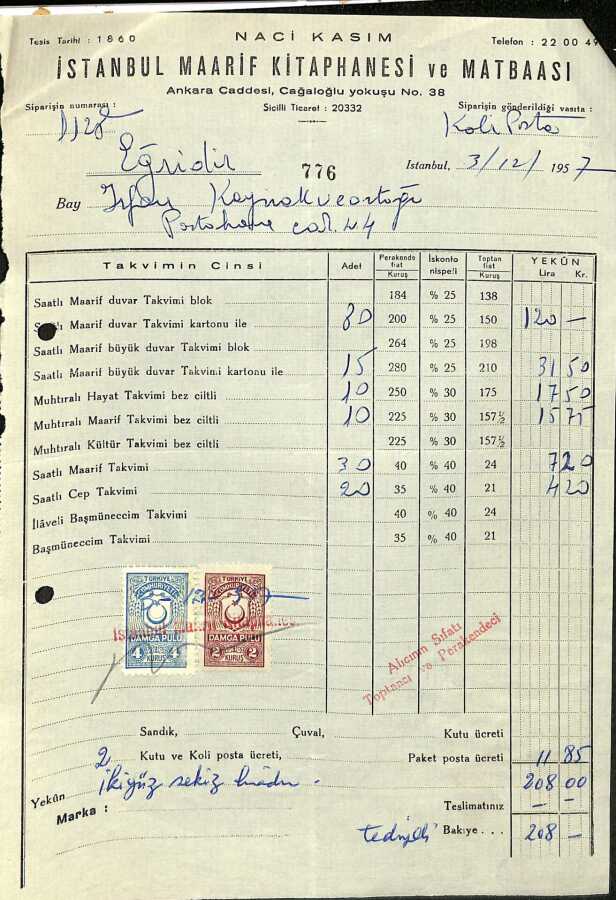 Tesis Tarihi : 1860
NACİ KASIM
Telefon : 22 00 49
İSTANBUL MAARİF KİTAPHANESİ ve MATBAASI
Ankara Caddesi, Cağaloğlu yokuşu No. 38
Siparişin numarası :
Sicilli Ticaret : 20332
Siparişin gönderildiği vasıta :
Koli Posta
Eğridir
776
Istanbul, 3/12/ 1957
Bay İrfan Kaynak ve ortağı
Postahane cad. 44
Takvimin Cinsi Adet Perakende fiat Kuruş İskonto nispeti Toptan fiat Kuruş YEKÛN Lira Kr.
Saatlı Maarif duvar Takvimi blok 184 % 25 138
Maarif duvar Takvimi kartonu ile 80 200 % 25 150 120 —
Saatlı Maarif büyük duvar Takvimi blok 264 % 25 198
Saatlı Maarif büyük duvar Takvimi kartonu ile 15 280 % 25 210 31 50
Muhtıralı Hayat Takvimi bez ciltli 10 250 % 30 175 17 50
Muhtıralı Maarif Takvimi bez ciltli 10 225 % 30 157½ 15 75
Muhtıralı Kültür Takvimi bez ciltli 225 % 30 157½
Saatlı Maarif Takvimi 30 40 % 40 24 7 20
Saatlı Cep Takvimi 20 35 % 40 21 4 20
İlâveli Başmüneccim Takvimi 40 % 40 24
Başmüneccim Takvimi 35 % 40 21
TÜRKİYE CUMHURİYETİ TÜRKİYE CUMHURİYETİ
DAMGA PULU DAMGA PULU
4 KURUŞ 4 2 KURUŞ 2
Alıcının Sıfatı
Toptancı ve Perakendeci
Sandık, Çuval, Kutu ücreti
2 Kutu ve Koli posta ücreti, Paket posta ücreti 11 85
Yekûn ikiyüz sekiz liradır. 208 00
Marka : Teslimatınız — —
tediyeli Bakiye . . . 208 —